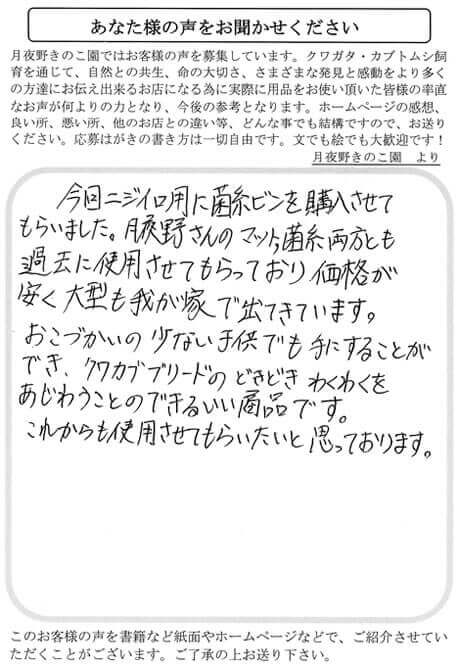 あなた様の声をお聞かせください
月夜野きのこ園ではお客様の声を募集しています。クワガタ・カブトムシ飼
育を通じて、自然との共生、命の大切さ、さまざまな発見と感動をより多く
の方達にお伝え出来るお店になる為に実際に用品をお使い頂いた皆様の率直
なお声が何よりの力となり、今後の参考となります。ホームページの感想、
良い所、悪い所、他のお店との違い等、どんな事でも結構ですので、お送り
ください。応募はがきの書き方は一切自由です。文でも絵でも大歓迎です！
月夜野きのこ園　より
今回ニジイロ用に菌糸ビンを購入させて
もらいました。月夜野さんのマット,菌糸両方とも
過去に使用させてもらっており価格が
安く大型も我が家で出てきています。
おこづかいの少ない子供でも手にすることが
でき、クワカブブリードのどきどきわくわくを
あじわうことのできるいい商品です。
これからも使用させてもらいたいと思っております。
このお客様の声を書籍など紙面やホームページなどで、ご紹介させてい
ただくことがございます。ご了承の上お送り下さい。